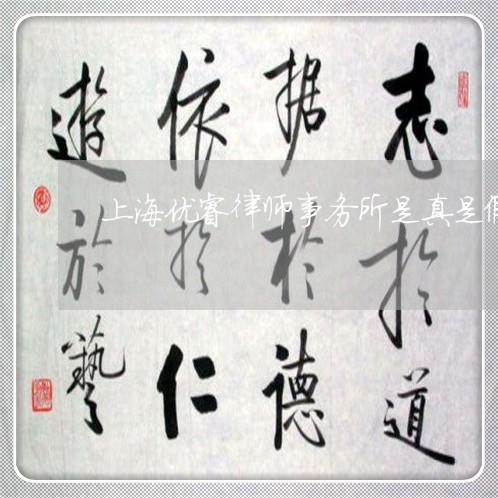 志於道
据於德
依於仁
遊於藝
上海优睿律师事务所是真是